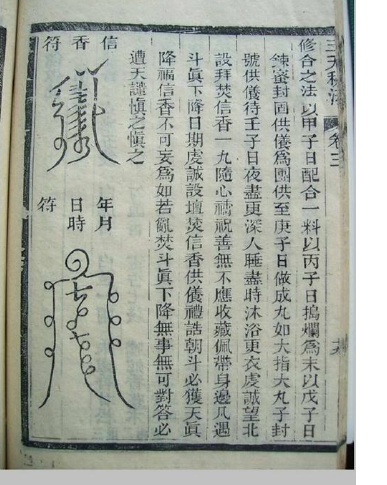 三天秘法 卷三
修合之法以甲子日配合一料以丙子日搗爛為末以戊子日
煉蜜封固供儀為團供至庚子日做成丸如大指大丸子封
號供儀待壬子日夜盡更深人睡盡時沐浴更衣虔誠望北
設拜焚信香一丸隨心禱祝善無不應收藏佩帶身邊凡遇
斗眞下降日期虔誠設壇焚信香供儀禮誥朝斗必獲天眞
降福信香不可妄為如若亂焚斗眞下降無事無可對答必
遭天譴慎之慎之
信香符
年月
日時
符